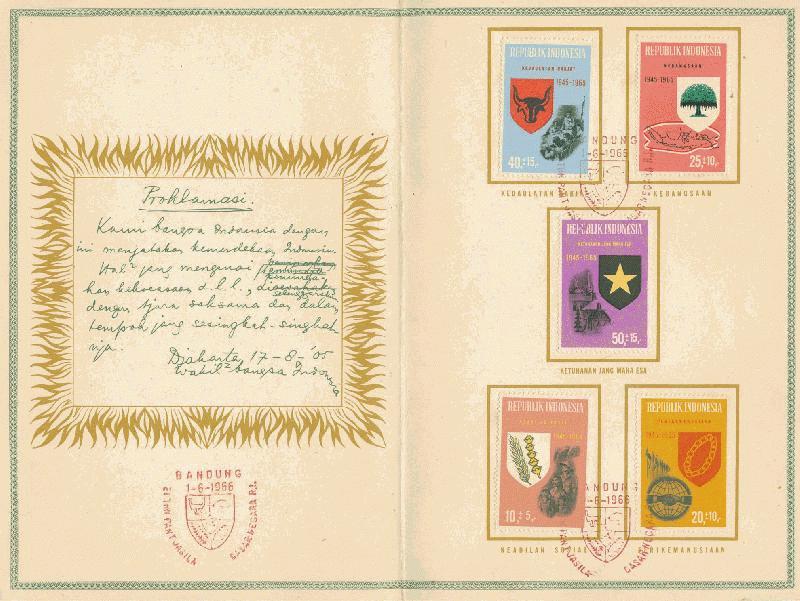 Proklamasi.
Kami bangsa Indonesia dengan
ini menjatakan kemerdekaan Indonesia.
Hal² jang mengenai
kekoeasaan d.l.l.,
dengan tjara saksama dan dalam
tempoh jang sesingkat-singkat
nja.
Djakarta, 17 - 8 - '05
Wakil² bangsa Indonesia
BANDUNG
1-6-1966
DASAR NEGARA R.I.
REPUBLIK INDONESIA
KEDAULATAN RAKJAT
1945-1965
40,+15,-
KEDAULATAN
REPUBLIK INDONESIA
KEBANGSAAN
1945-1965
25,+10,-
KEBANGSAAN
BANDUNG
1-6-1966
REPUBLIK INDONESIA
KETUHANAN JANG MAHA ESA
1945-1965
50,+15,-
KETUHANAN JANG MAHA ESA
REPUBLIK INDONESIA
10,+5,-
KEADILAN SOSIAL
REPUBLIK INDONESIA
1945-1965
20,+10,-
PERIKEMANUSIAAN
BANDUNG
1-6-1966
DASAR NEGARA